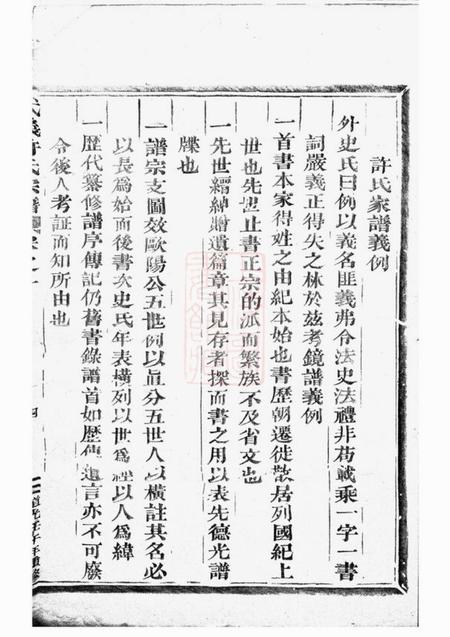 許氏家譜義例
外史氏曰例以義名匪義弗令法史法禮非苟載乘一字一書
詞嚴義正得失之林於茲考鏡譜義例
一首書本家得姓之由紀本始也書歷朝遷徙散居列國紀上
世也先世止書正宗的派而繁族不及省文也
一先世縉紳贈遺篇章其見存者探而書之用以表先德光譜
牒也
一譜宗支圖效歐陽公五世例以直分五世人以橫註其名必
以長爲始而後書次史氏年表橫列以世爲經以人爲緯
一歷代纂修譜序傳記仍舊書錄譜首如歷傳遺言亦不可廢
令後人考証而知所由也
義許氏宗譜 卷之一
四
道光壬午年重修